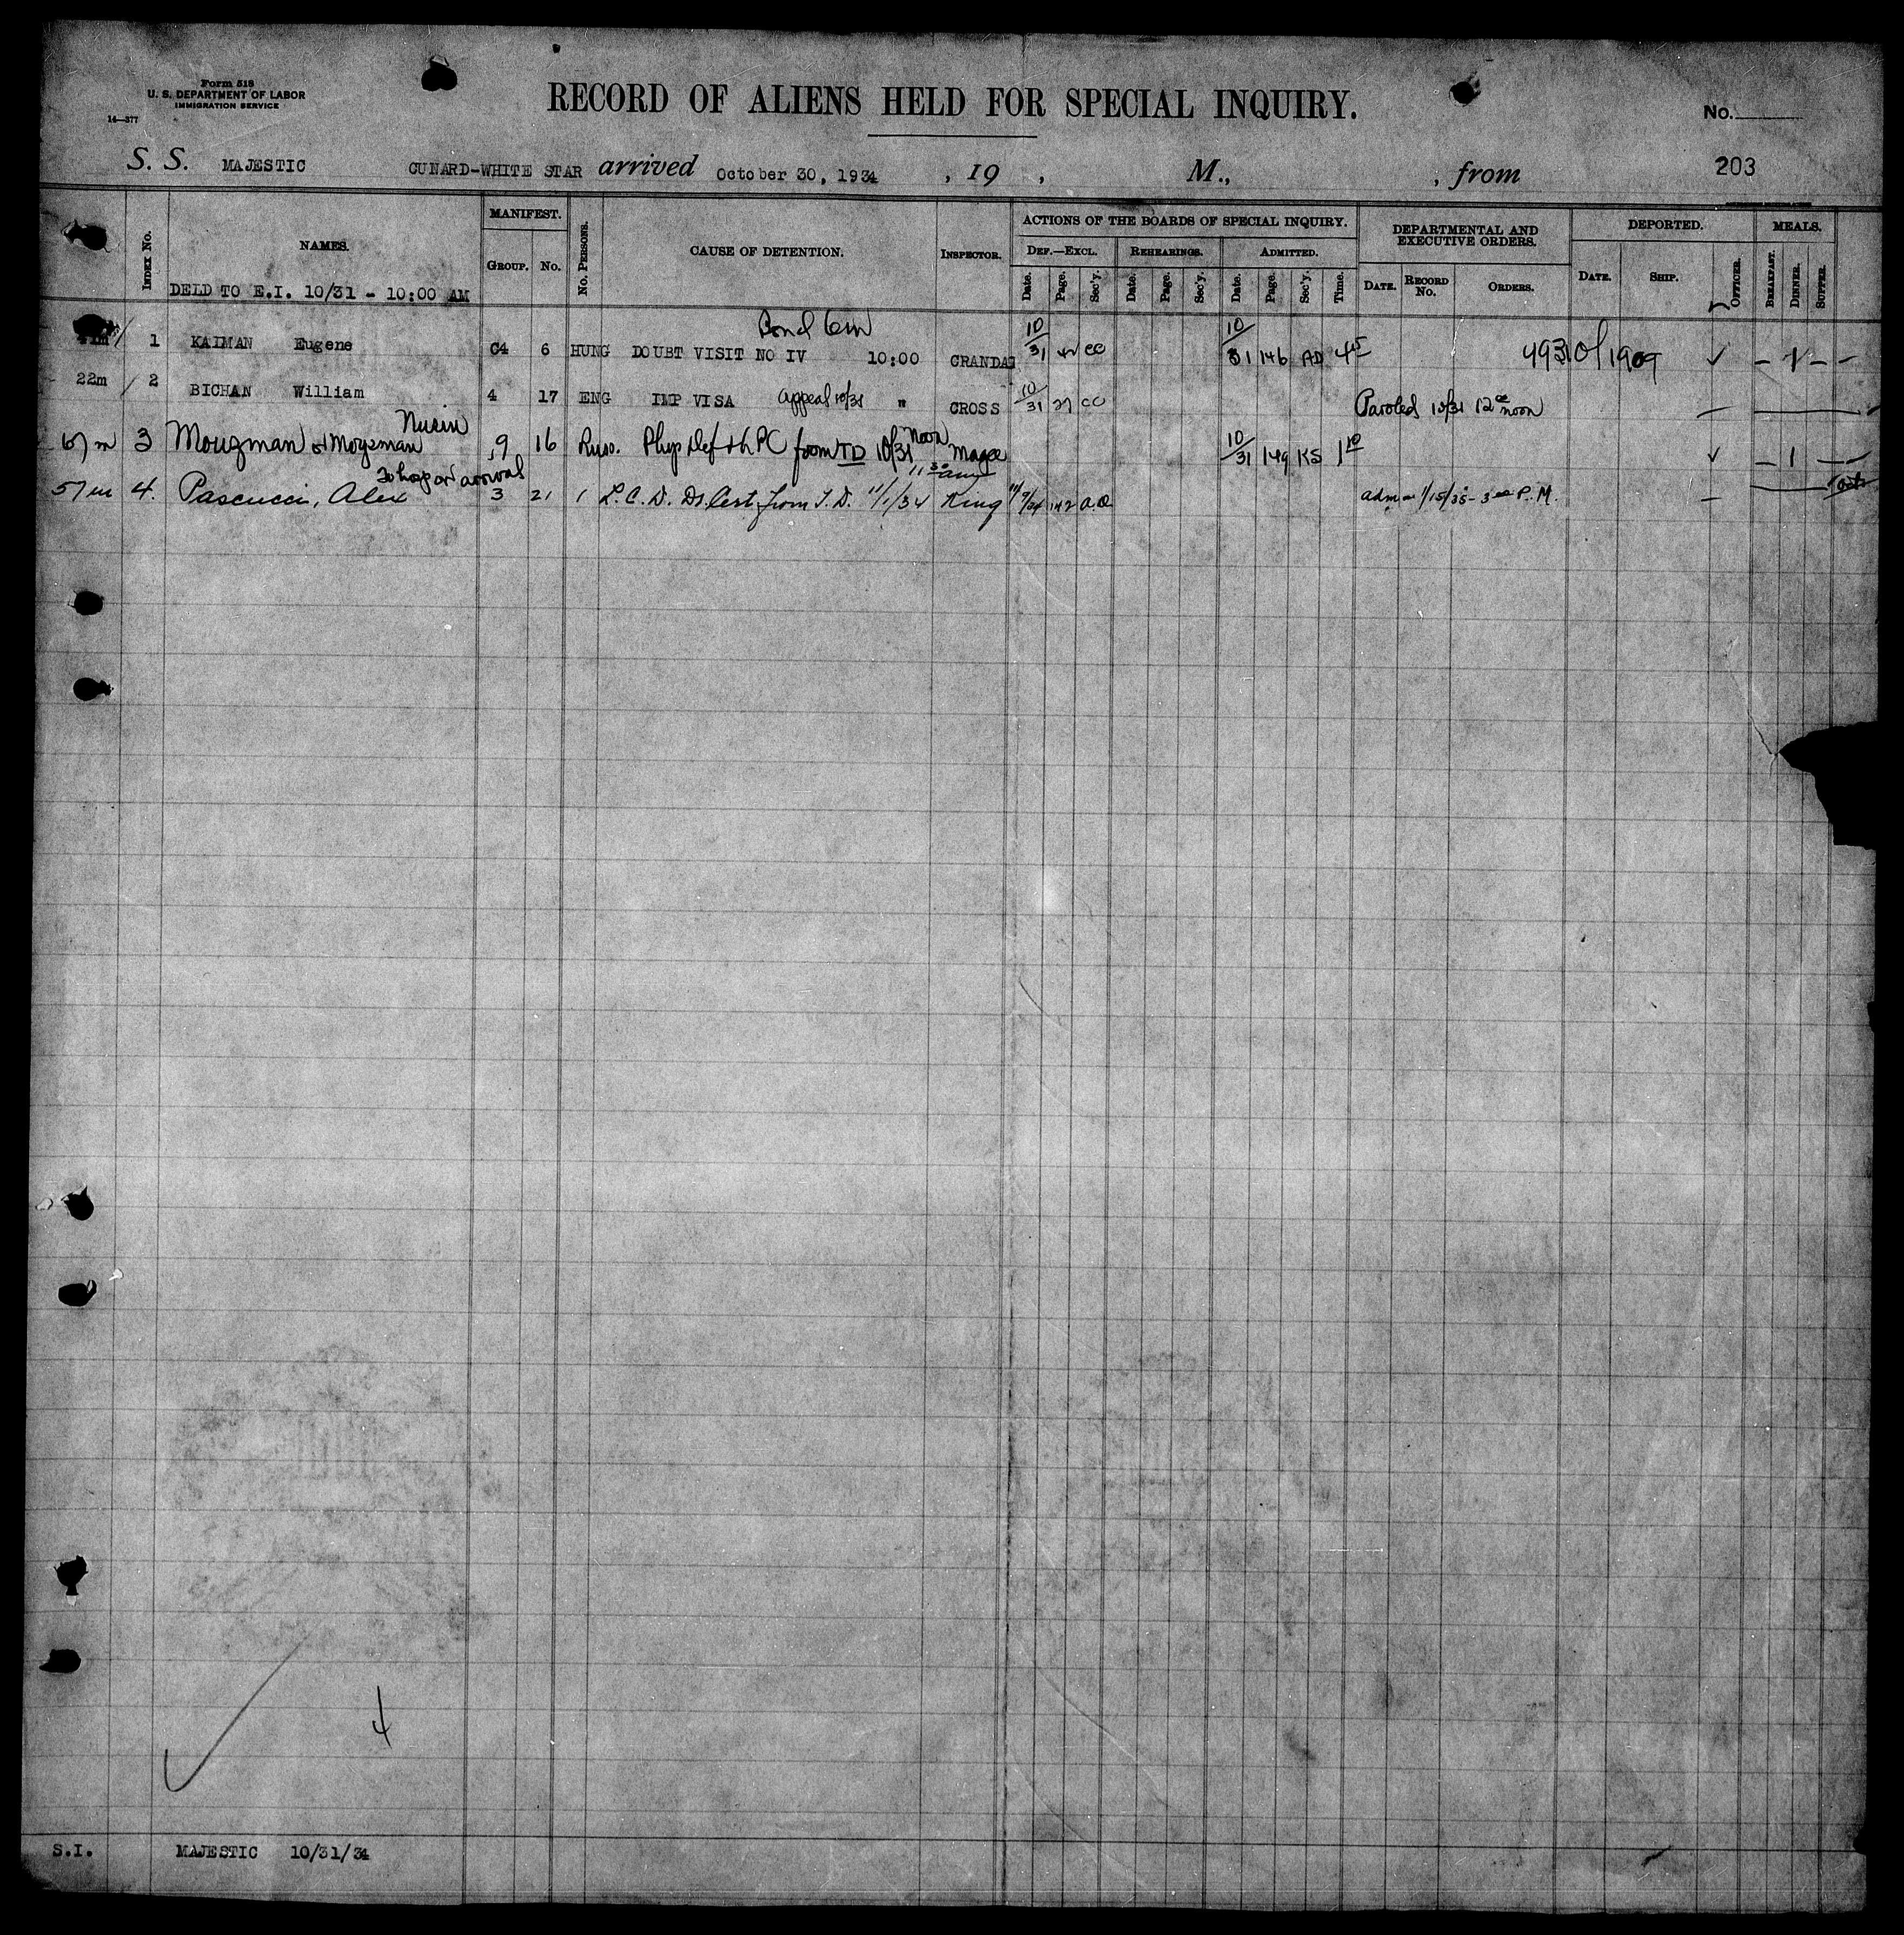 Form 518
U. S. DEPARTMENT OF LABOR
IMMIGRATION SERVICE
14—377
RECORD OF ALIENS HELD FOR SPECIAL INQUIRY.
No.
S. S. MAJESTIC CUNARD-WHITE STAR arrived October 30, 1934 , 19 , M., , from 203
INDEX No.
NAMES.
DELD TO E.I. 10/31 - 10:00 AM
MANIFEST.
GROUP. No.
No. PERSONS.
CAUSE OF DETENTION.
INSPECTOR.
ACTIONS OF THE BOARDS OF SPECIAL INQUIRY.
DEF.—EXCL. REHEARINGS. ADMITTED.
Date. Page. Sec'y. Date. Page. Sec'y. Date. Page. Sec'y. Time.
DEPARTMENTAL AND
EXECUTIVE ORDERS.
DATE. RECORD No. ORDERS.
DEPORTED.
DATE. SHIP. OFFICER.
MEALS.
BREAKFAST. DINNER. SUPPER.
Bond 6m
1 KAIMAN Eugene C4 6 HUNG DOUBT VISIT NO IV 10:00 CRANDAL 10/31 42 CC 10/31 146 AD 4 15 49310/1909 ✓ - 1 - -
22m 2 BICHAN William 4 17 ENG IMP VISA Appeal 10/31 " CROSS 10/31 27 CC Paroled 10/31 12 noon
Nusin
67m 3 Mouzman or Moyzman 9 16 Russ. Phys Def th PC from TD 10/31 Noon Magee 10/31 149 KS 1 10 ✓ - 1 - -
To hosp on arrival 11 30 am
57m 4. Pascucci, Alex 3 21 1 L. C. D. Dr. Cert. from T. D. 11/1/34 King 11/7/34 142 a.a. adm 1/15/35 - 3 00 P. M.
4
S.I. MAJESTIC 10/31/34